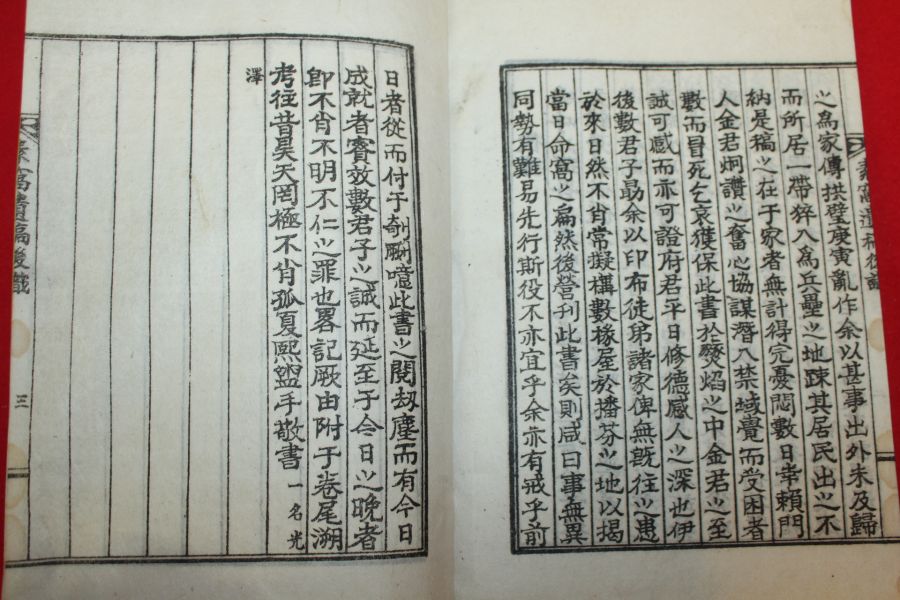 之爲家傳拱璧庚寅亂作余以甚事出外未及歸
而所居一帶猝入爲兵壘之地疎其居民出之不
納是稿之在于家者無計得完憂悶數日幸賴門
人金君炯讚之奮心協謀潛入禁域覺而受困者
數而冒死乞哀獲保此書於燹焰之中金君之至
誠可感而亦可證府君平日修德感人之深也伊
後數君子勗余以印布徒弟諸家俾無旣往之患
於來日然不肖常擬構數椽屋於播芬之地以揭
當日命窩之扁然後營刊此書矣則咸曰事無異
同勢有難易先行斯役不亦宜乎余亦有戒乎前
日者從而付于剞劂噫此書之閱劫塵而有今日
成就者賽效數君子之誠而延至于今日之晩者
卽不肖不明不仁之罪也畧記厥由附于卷尾溯
考往昔昊天罔極不肖孤夏熙盥手敬書 一名光
澤
窩遺稿後識
三